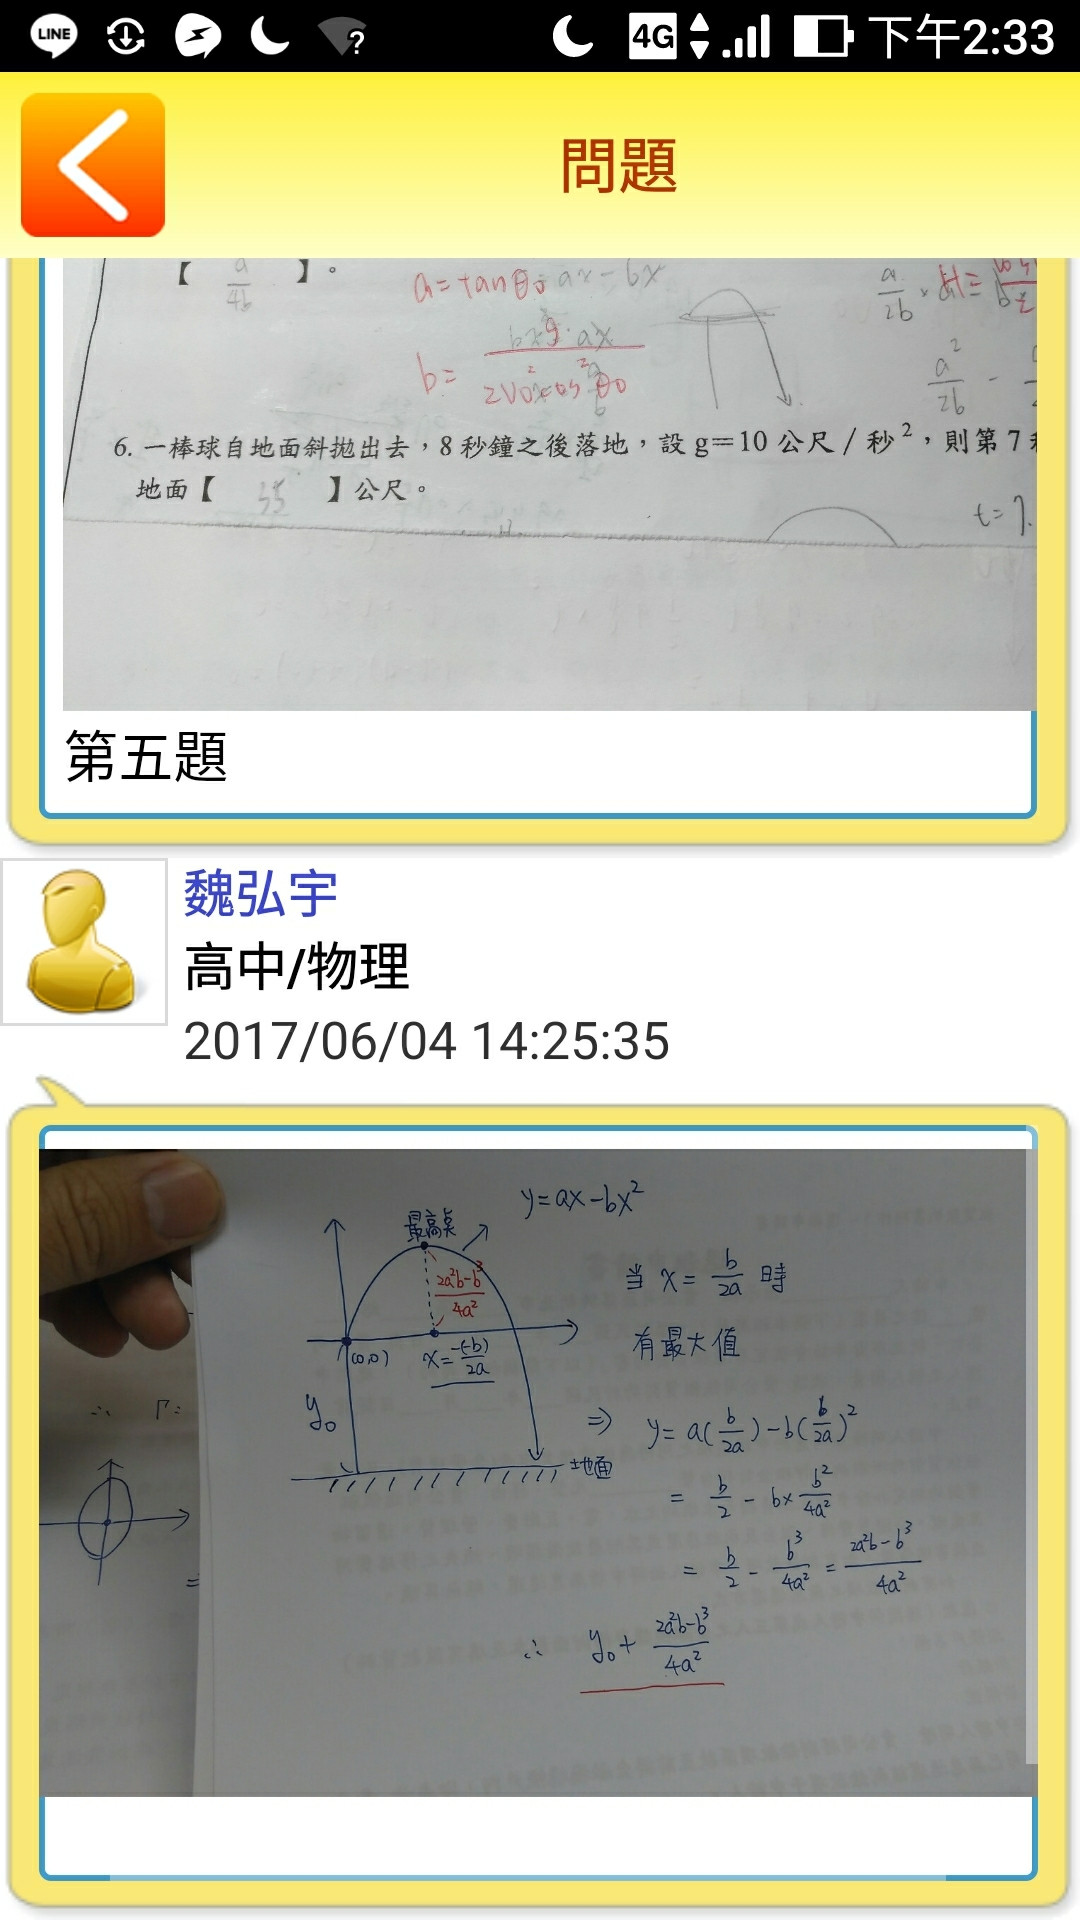 LINE
4G
下午2:33
問題
【 a/4b 】。
a = tanθ₀
b =
2V₀²cos²θ₀
a/2b
a²/2b -
6. 一棒球自地面斜拋出去，8 秒鐘之後落地，設 g＝10 公尺／秒²，則第 7
地面【 35 】公尺。
t=7.
第五題
魏弘宇
高中/物理
2017/06/04 14:25:35
y=ax-bx²
最高點
(2a²b-b³)/4a²
当 x = b/2a 時
(0,0)
x = -(-b)/2a
有最大值
y₀
⇒ y = a(b/2a) - b(b/2a)²
地面
= b/2 - b × b²/4a²
= b/2 - b³/4a² = (2a²b-b³)/4a²
∴ y₀ + (2a²b-b³)/4a²